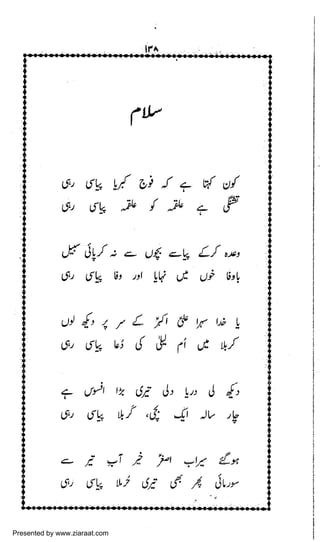 ۱۳۸
سلام
کون کہتا ہے کہ فوجِ کبریا پیاسی رہی
تشنگی ہے علقمہ کو علقمہ پیاسی رہی
وعدہ کرکے پیاسے بچوں سے نہ کرپائی سبیل
باوفا خوں میں نہایا اور وفا پیاسی رہی
یا خدا سہرا علی اکبرؑ کے سر پر دیکھ لوں
کربلا میں اُم لیلیٰؑ کی دُعا پیاسی رہی
دیکھ لی دریا دلی تیری بڑا افسوس ہے
چار سالہ ایک بچی، کربلا پیاسی رہی
ہوگئے سیراب اصغرؑ خیر آبِ تیر سے
سورمائی پھر بھی تیری حُرملا پیاسی رہی
Presented by www.ziaraat.com